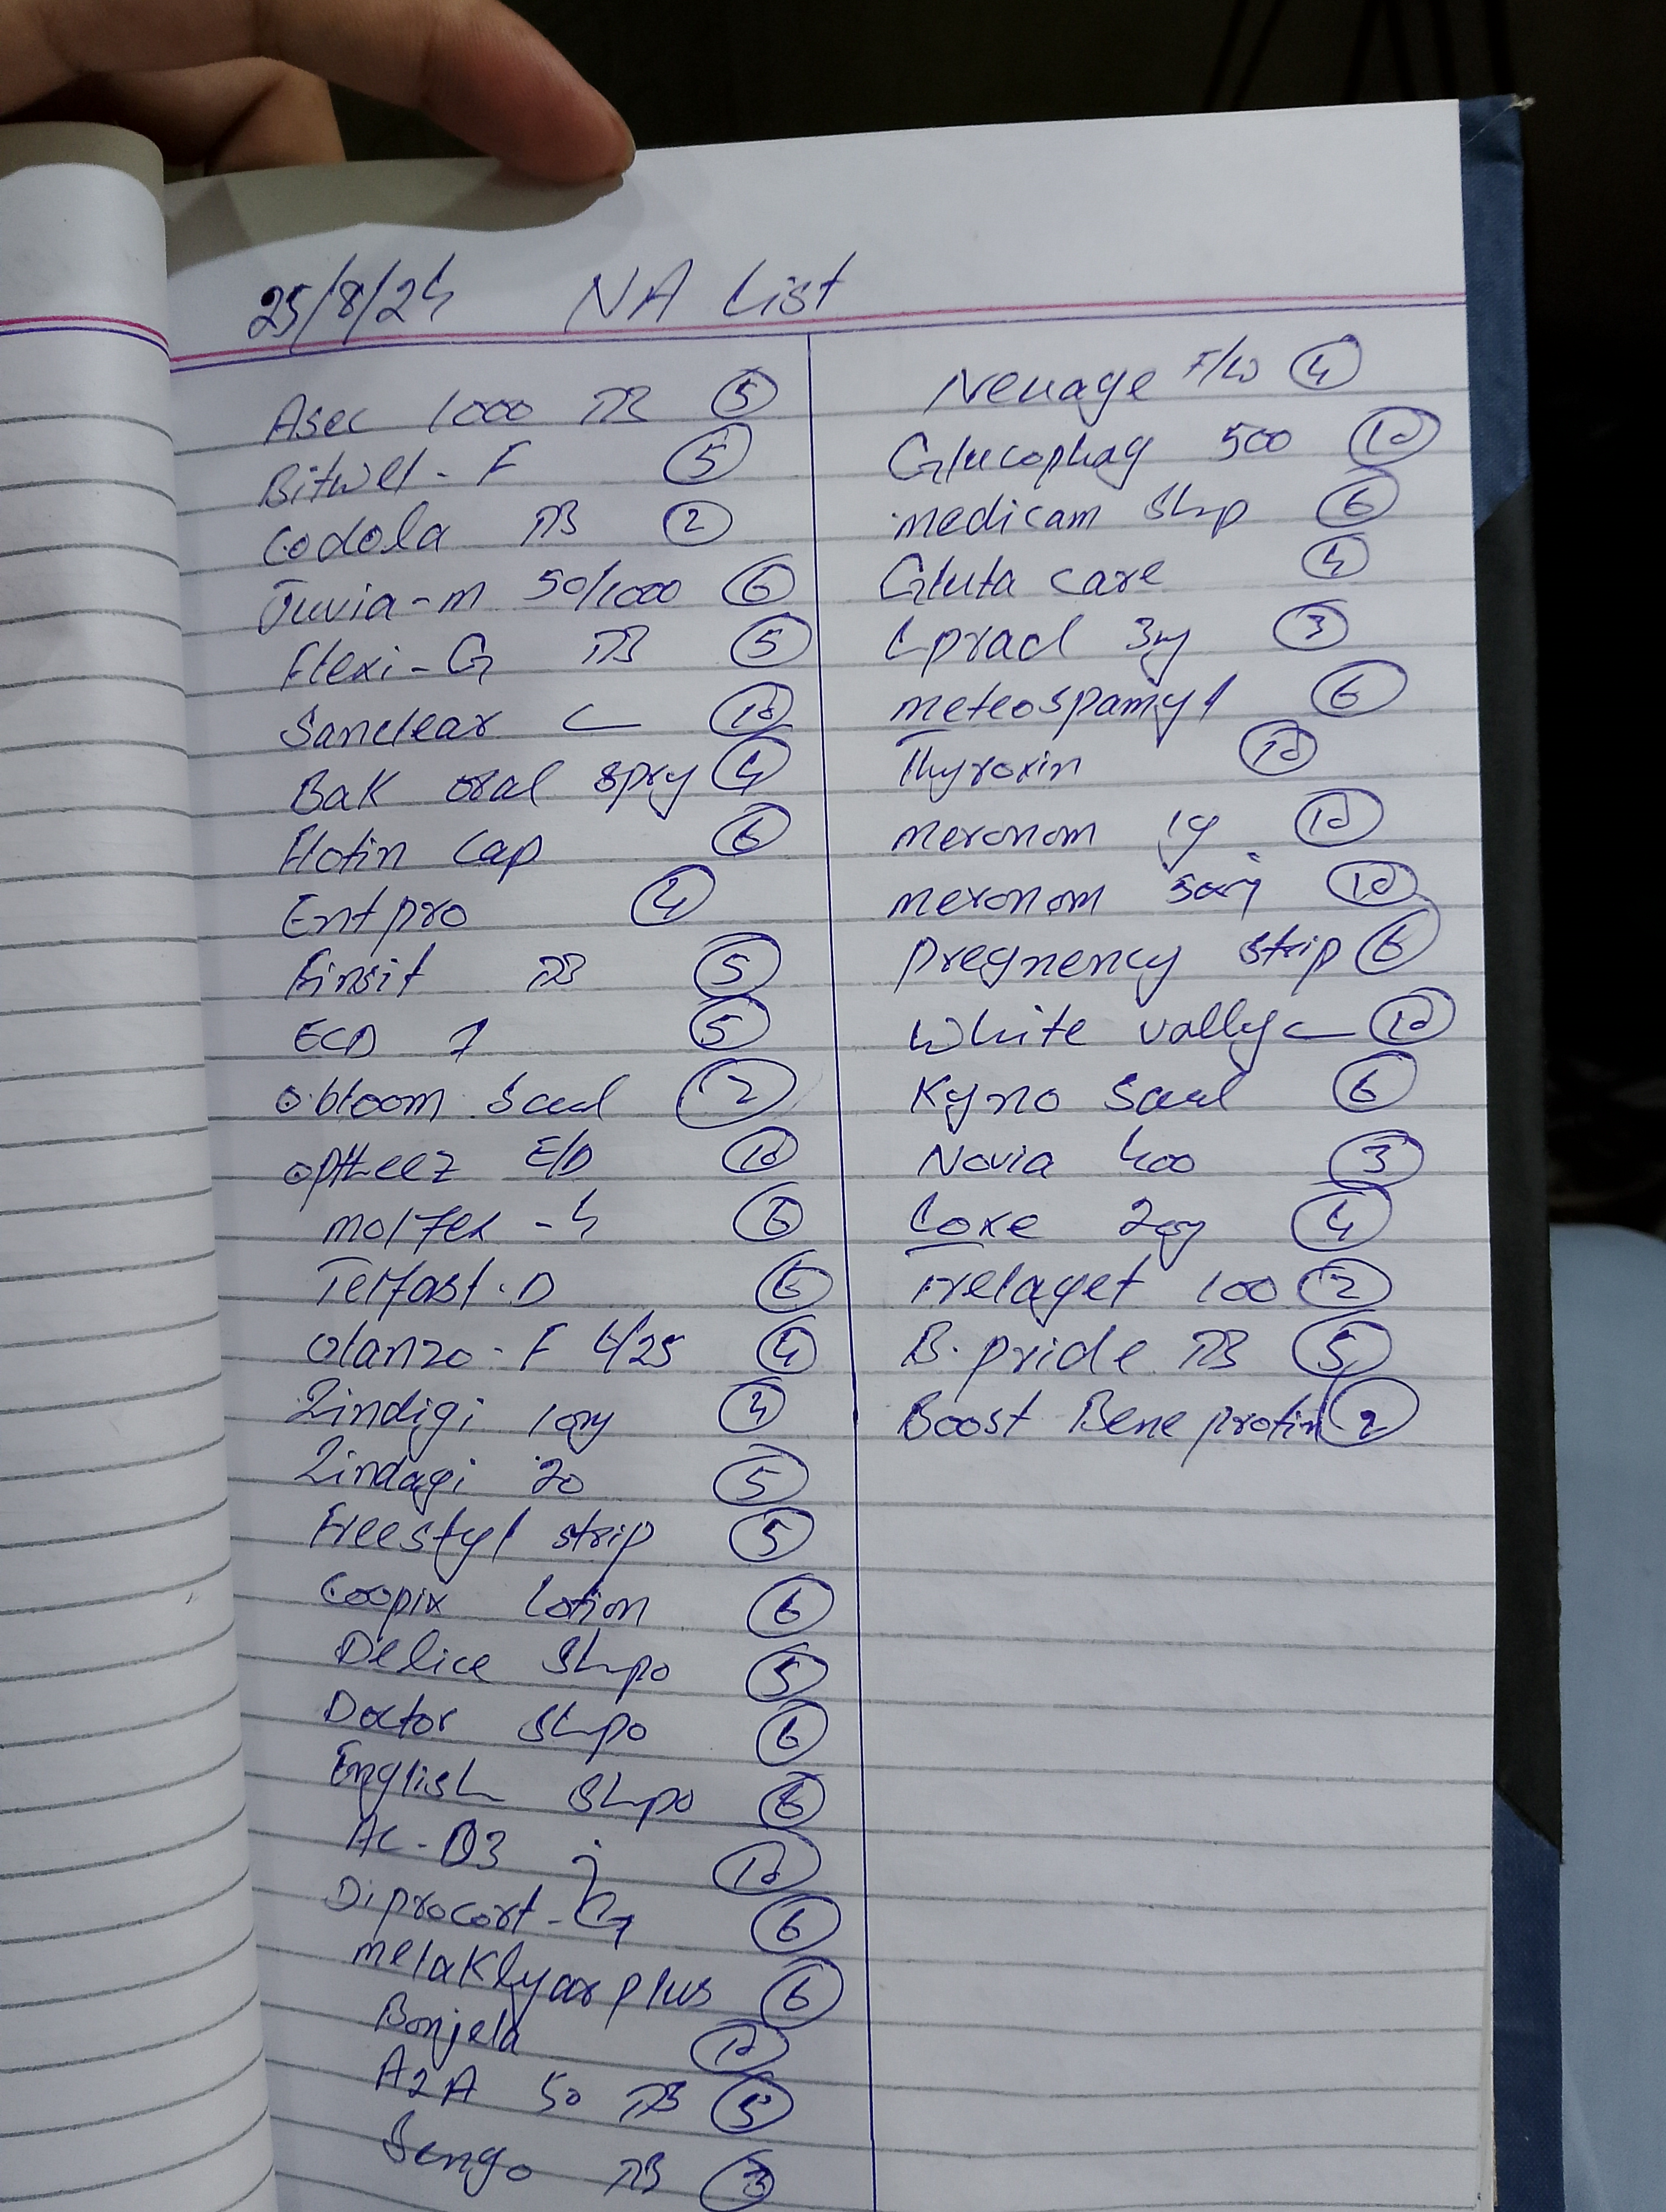 25/8/24 NA List
Asec 1000 TB 5
Bitwel-F 5
Codola TB 2
Juvia-m 50/1000 6
Flexi-G TB 5
Sanclear C 10
Bak oral spry 4
Flotin Cap 6
Entpro 4
Finsit TB 5
ECD 5
obloom 2
optteez E/D 10
molfex-4 6
Telfast.D 6
Olanzo-F 6/25 4
Zindigi 4
Zindagi 20 5
Freestyl strip 5
Coopix Lotion 6
Delice Shpo 5
Doctor Shpo 6
English Shpo 6
AC-D3 inj 10
Diprocort-G 6
melaKlyar plus 6
Bonjela 10
A2A 50 TB 5
Sengo TB 3
Neuage F/W 4
Glucophag 500 10
medicam Shp 6
Gluta care 4
Lprad 3mg 3
meteospamyl 6
Thyroxin 10
meronom 1g 10
meronom 500mg 10
Pregnency strip 6
White vally C 10
Kyno 6
Novia 400 3
Loxe 20mg 4
Trelaget 100 2
B.pride TB 5
Boost Bene protin 2